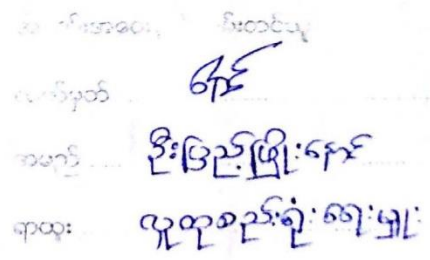 လက်မှတ် နောင်
အမည် ဦးပြည့်ဖြိုးနောင်
ရာထူး လူထုစည်းရုံးရေးမှူး